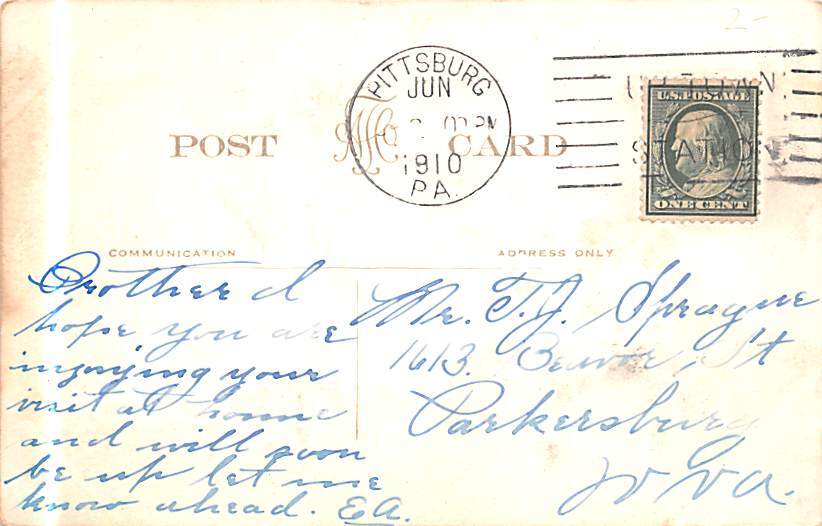 PITTSBURG
JUN
1910
PA.
STATION
U.S. POSTAGE
ONE CENT
POST CARD
COMMUNICATION
ADDRESS ONLY
Brother I
hope you are
injoying your
visit at home
and will soon
be up let me
know ahead. E.A.
Mr. T.J. Sprague
1613. Beaver St
Parkersburg
W Va.